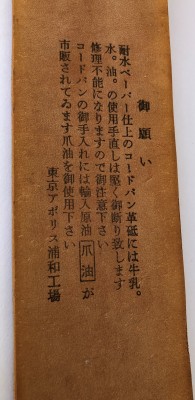 御願い
耐水ペーパー仕上のコードバン革砥には牛乳。
水。油。の使用手直しは堅く御断り致します
修理不能になりますので御注意下さい
コードバンの御手入れには輸入原油 爪油 が
市販されてゐます爪油を御使用下さい
東京アポリス浦和工場